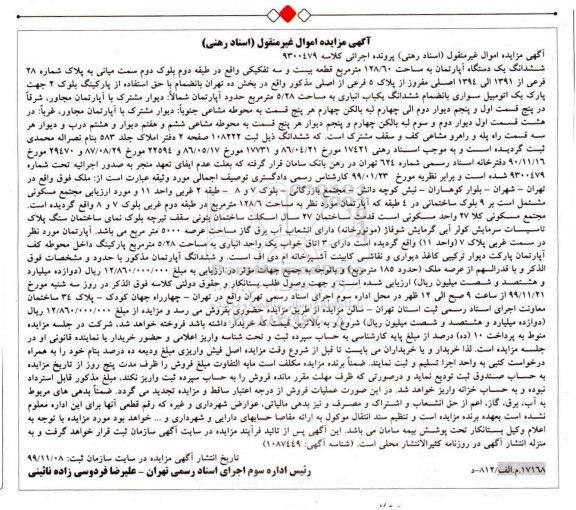 آگهی مزایده اموال غیرمنقول (اسناد رهنی)
آگهی مزایده اموال غیرمنقول (اسناد رهنی) پرونده اجرائی کلاسه ۹۳۰۰۴۷۹
ششدانگ یک دستگاه آپارتمان به مساحت ۱۲۸/۶۰ مترمربع قطعه بیست و سه تفکیکی واقع در طبقه دوم بلوک دوم سمت میانی به پلاک شماره ۲۸
فرعی از ۱۳۹۱ الی ۱۳۹۴ اصلی مفروز از پلاک ۵ فرعی از اصلی مذکور واقع در بخش ده تهران بانضمام با حق استفاده از پارکینگ بلوک ۲ جهت
پارک یک اتومبیل سواری بانضمام ششدانگ یکباب انباری به مساحت ۵/۲۸ مترمربع حدود آپارتمان شمالاً: دیوار مشترک با آپارتمان مجاور، شرقاً
در پنج قسمت اول و پنجم دیوار دوم الی چهارم لبه بالکن چهارم هر پنج قسمت به محوطه مشاعی جنوباً: دیوار مشترک با آپارتمان مجاور، غرباً: در
هشت قسمت اول دیوار دوم و سوم لبه بالکن چهارم و پنجم دیوار هر پنج قسمت به محوطه مشاعی ششم و هفتم دیوار و هشتم درب و دیوار هر
سه قسمت راه پله و راهرو مشاعی کف و سقف مشترک است. که ششدانگ ذیل ثبت ۱۰۸۲۲۲ صفحه ۲ دفتر املاک جلد ۵۸۳ بنام نصراله محمدی
ثبت گردیده است و به موجب اسناد رهنی ۱۷۴۲۱ مورخ ۸۶/۰۴/۲۱ و ۱۷۷۳۱ مورخ ۸۶/۰۵/۱۷ و ۲۲۵۹۴ مورخ ۸۷/۰۸/۲۹ و ۲۹۴۷۰ مورخ
۹۰/۱۱/۱۶ دفترخانه اسناد رسمی شماره ۶۲۴ تهران در رهن بانک سامان قرار گرفته که بعلت عدم ایفای تعهد منجر به صدور اجرائیه تحت شماره
۹۳۰۰۴۷۹ شده است و برابر نظریه مورخ ۹۹/۰۱/۲۳ کارشناس رسمی دادگستری توصیف اجمالی مورد وثیقه عبارت است از: ملک فوق واقع در
تهران - شهران - بلوار کوهساران - نبش کوچه دانش - مجتمع بازرگانی - بلوک ۷ و ۸ - طبقه ۲ غربی واحد ۱۱ و مورد ارزیابی مجتمع مسکونی
مشتمل است بر ۹ بلوک ساختمانی در ۴ طبقه که آپارتمان مورد نظر به مساحت ۱۲۸/۶ مترمربع در طبقه دوم غربی بلوک ۷ و ۸ واقع گردیده است.
مجتمع مسکونی کلا ۲۷ واحد مسکونی است قدمت ساختمان ۲۷ سال اسکلت ساختمان بتونی سقف تیرچه بلوک نمای ساختمان سنگ پلاک
تاسیسات سرمایش کولر آبی گرمایش شوفاژ (موتورخانه) دارای انشعاب آب برق گاز مساحت عرصه ۵۰۰۰ متر مربع می باشد. آپارتمان مورد نظر
در سمت غربی پلاک ۷ (واحد ۱۱) واقع گردیده است دارای ۳ اتاق خواب یک واحد انباری به مساحت ۵/۲۸ مترمربع پارکینگ داخل محوطه کف
آپارتمان پارکت دیوار ترکیبی کاغذ دیواری و نقاشی کابینت آشپزخانه ام دی اف است. و ششدانگ آپارتمان مذکور با حدود و مشخصات فوق
الذکر و با قدرالسهم از عرصه ملک (حدود ۱۸۵ مترمربع) و باتوجه به جمیع جهات مؤثر در ارزیابی به مبلغ ۱۲/۸۶۰/۰۰۰/۰۰۰ ریال (دوازده میلیارد
و هشتصد و شصت میلیون ریال) ارزیابی شده است و جهت وصول طلب بستانکار و حقوق دولتی کلاسه فوق الذکر در روز سه شنبه مورخ
۹۹/۱۱/۲۱ از ساعت ۹ صبح الی ۱۲ ظهر در محل اداره سوم اجرای اسناد رسمی تهران واقع در تهران - چهارراه جهان کودک - پلاک ۳۴ ساختمان
معاونت اجرای اسناد رسمی ثبت استان تهران - سالن مزایده از طریق مزایده حضوری بفروش می رسد و مزایده از مبلغ ۱۲/۸۶۰/۰۰۰/۰۰۰ ریال
(دوازده میلیارد و هشتصد و شصت میلیون ریال) شروع و به بالاترین قیمت که خریدار داشته باشد فروخته خواهد شد. شرکت در جلسه مزایده
منوط به پرداخت ۱۰ (ده) درصد از مبلغ پایه کارشناسی به حساب سپرده ثبت و تحت شناسه واریز اعلامی و حضور خریدار یا نماینده قانونی او در
جلسه مزایده است. لذا خریدار و یا خریداران می بایست تا قبل از شروع وقت مزایده اصل فیش واریزی مبلغ ودیعه ده درصد بنام خود را به همراه
درخواست کتبی به واحد اجرا تسلیم و ثبت نمایند. ضمناً برنده مزایده مکلف است مابه التفاوت مبلغ فروش را ظرف مدت پنج روز از تاریخ مزایده
به حساب صندوق ثبت تودیع نماید و درصورتی که ظرف مهلت مقرر مانده فروش را به حساب سپرده ثبت واریز نکند، مبلغ مذکور قابل استرداد
نبوده و به حساب خزانه واریز خواهد شد. در این صورت عملیات فروش از درجه اعتبار ساقط و مزایده تجدید می گردد. ضمناً بدهی های مربوط
به آب، برق، گاز، اعم از حق انشعاب و اشتراک و مصرف و نیز بدهی مالیاتی، عوارض شهرداری و غیره که رقم قطعی آنها برای این اداره معلوم
نشده است بعهده برنده مزایده است و تنظیم سند انتقال موکول به ارائه مفاصا حسابهای دارایی و شهرداری و ... خواهد بود مورد مزایده با توجه به
اعلام وکیل بستانکار تحت پوشش بیمه سامان می باشد. این آگهی پس از تائید فرآیند مزایده در سایت آگهی سازمان ثبت قرار خواهد گرفت و به
منزله انتشار آگهی در روزنامه کثیرالانتشار محلی است. (شناسه آگهی: ۱۰۸۷۴۴۹)
تاریخ انتشار آگهی مزایده در سایت سازمان ثبت: ۹۹/۱۱/۰۸
رئیس اداره سوم اجرای اسناد رسمی تهران - علیرضا فردوسی زاده نائینی
۱۷۱۶۸/م.الف/۸۱۲-د